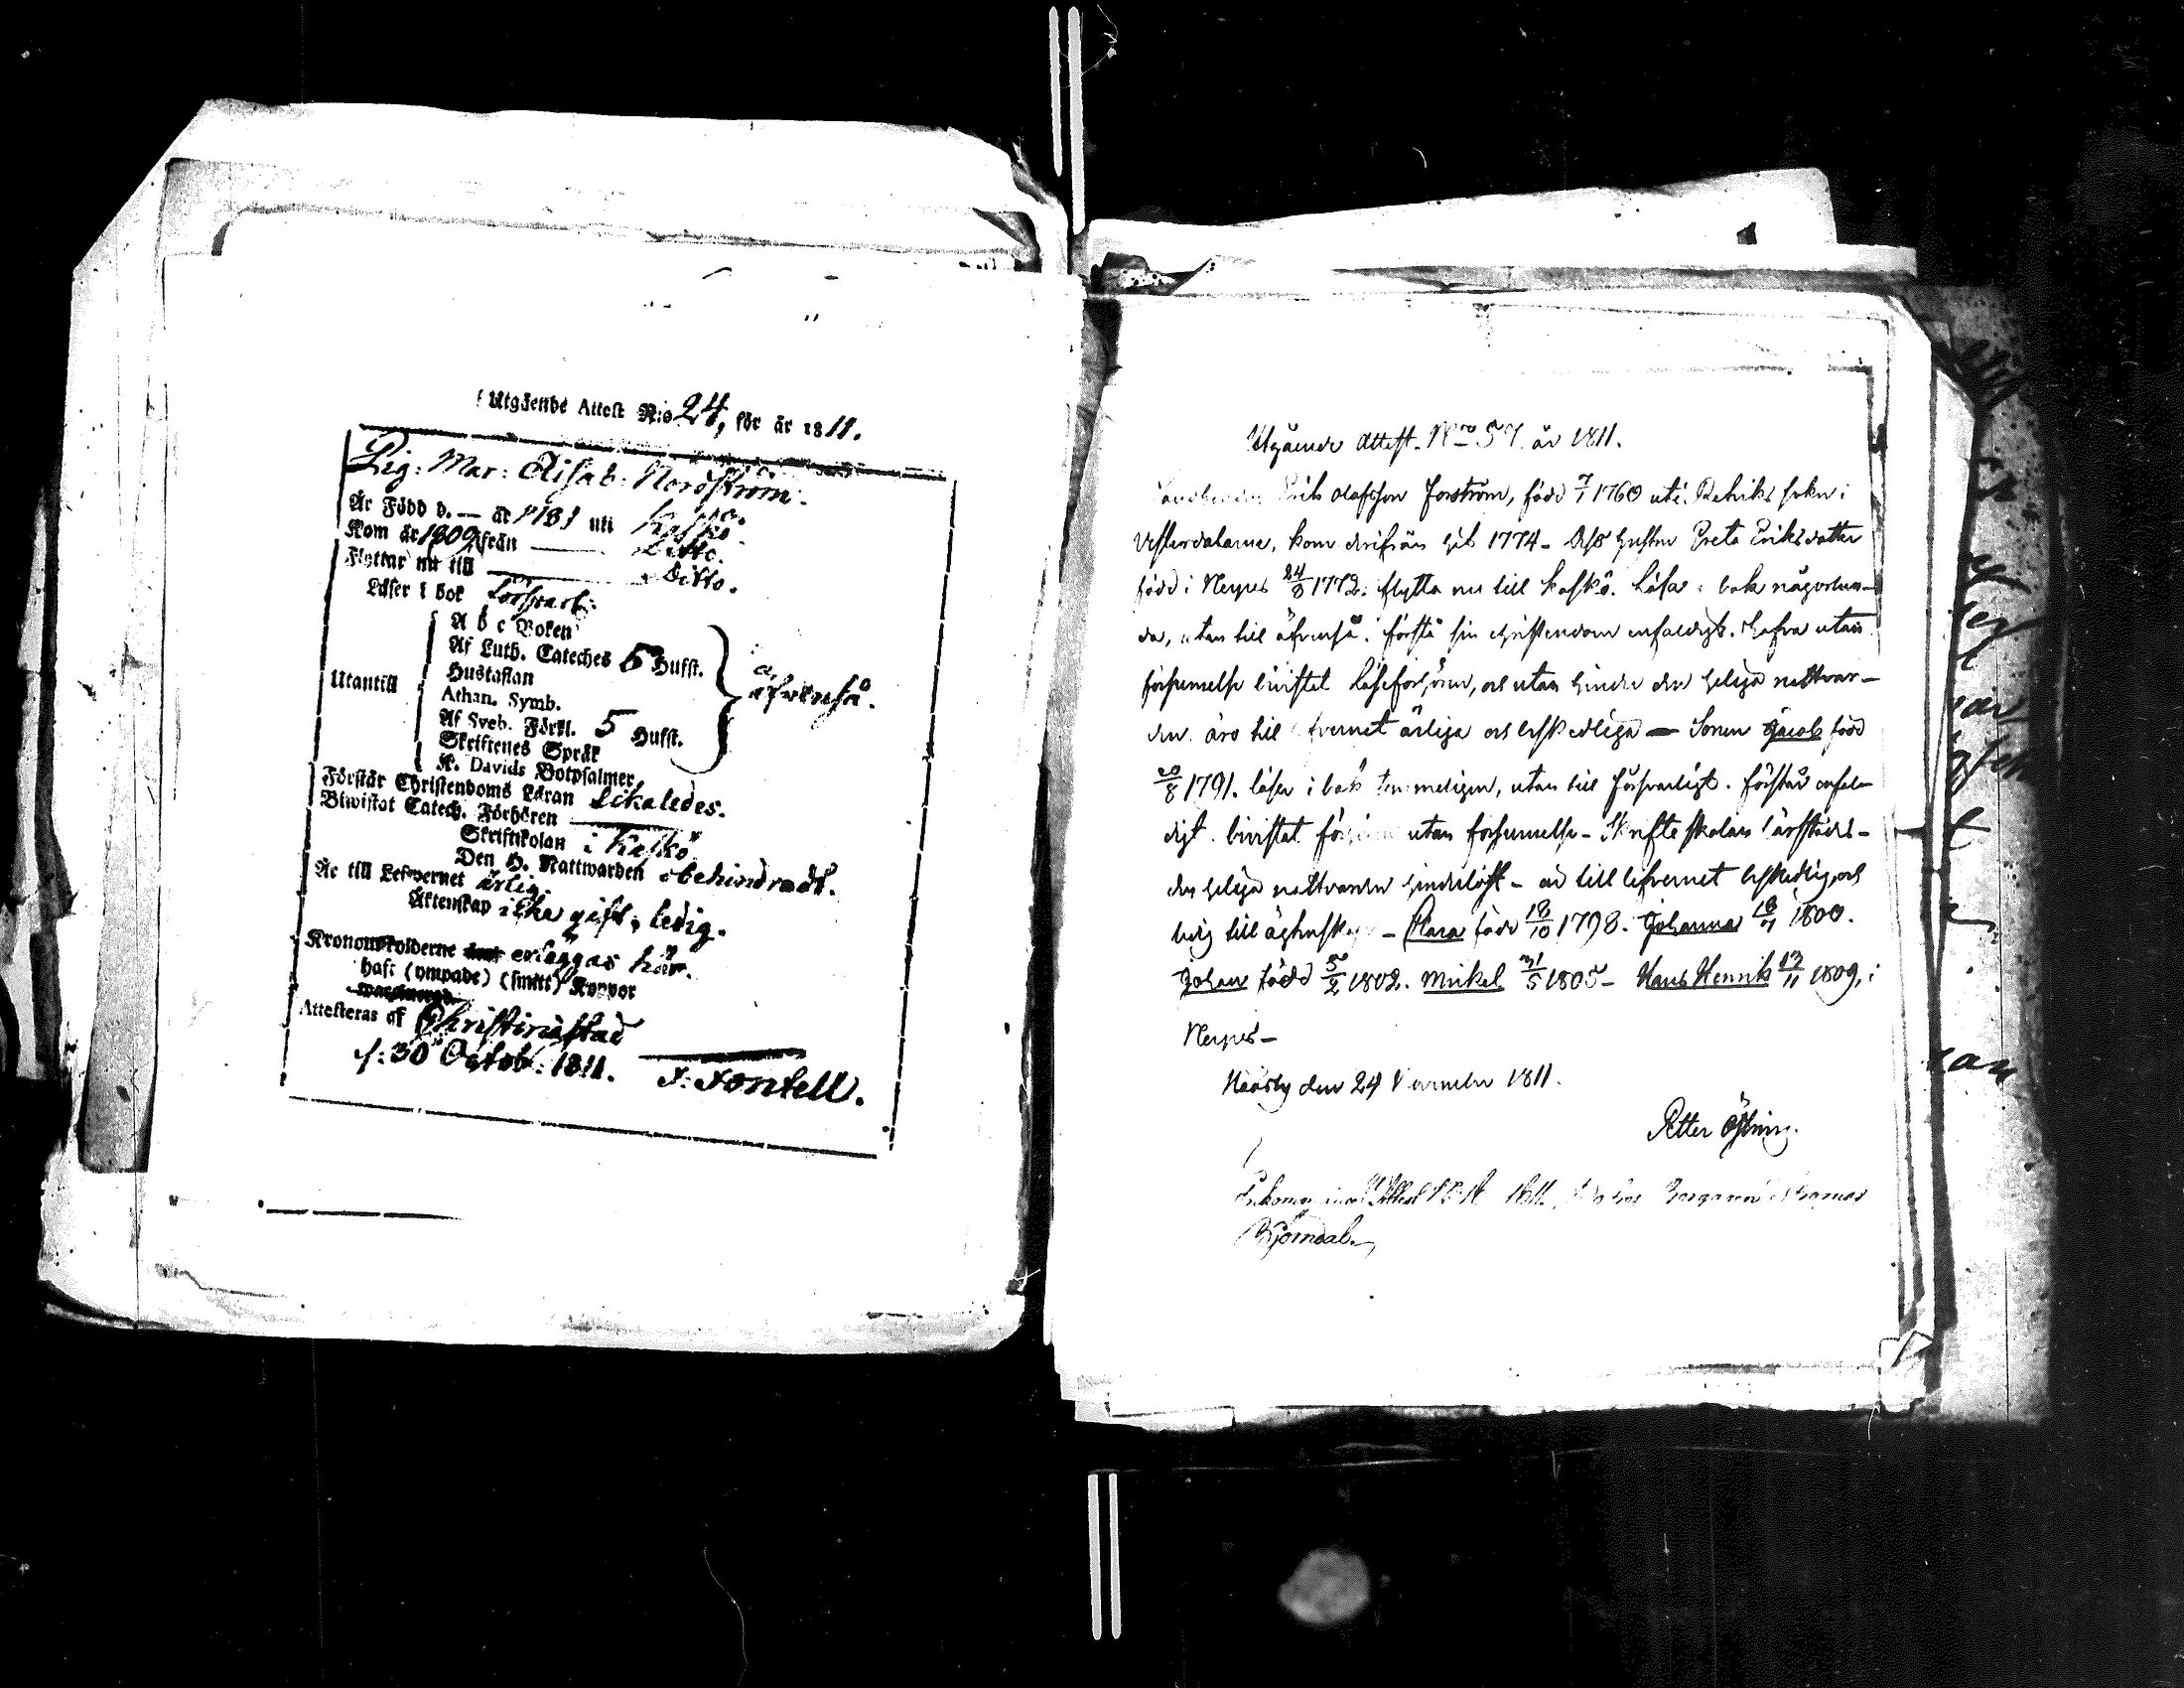 Utgående Attest N:o 24, för år 1811.
Pig: Mar: Elisab: Nordström.
Är Född d. — år 1781 uti Kaskö.
Kom år 1809 ifrån — Ditto.
Flyttar nu till — Ditto.
Läser i bok försvarl:
A b c Boken
Af Luth. Cateches 5 Hufst.
Hustaflan
Athan. Symb.
Utantill
äfvenså.
Af Sveb. Förkl. 5 Hufst.
Skriftenes Språk
K. Davids Botpsalmer
Förstår Christendoms Läran Likaledes.
Biwistat Catech. Förhören
Skriftskolan i Kaskö
Den H. Nattwarden obehindradt.
Är till Lefwernet ärlig.
Äktenskap icke gift, ledig.
Kronoutskylderne erläggas här.
haft (ympade) (smitt) Koppor
Attesteras af Christinæstad
d: 30 Octob: 1811. J: Fontell.
Utgående Attest No 57. år 1811.
Erik Olofsson Forsström, född 7/1 1760 uti Rettviks sokn i
Vesterdalarne, kom derifrån hit 1774 - Dess hustru Greta Eriksdotter
född i Nerpes 24/8 1772. flytta nu till Kaskö. Läsa i bok någorlun-
da, utan till äfvenså. förstå sin christendom enfaldigt. Hafva utan
försumelse bivistat Läseförhören, och utan hinder den heliga nattvar-
den. äro till lefvernet ärliga och beskedliga — Sonen Jacob född
20/8 1791. läser i bok temmeligen, utan till försvarligt. förstår enfal-
digt. bivistat förhören utan försumelse - Skrifteskolan härstädes -
den heliga nattvarden hinderlöst - är till lefvernet beskedlig, och
ledig till äghtenskap - Clara född 18/10 1798. Johanna 18/7 1800.
Johan född 5/2 1802. Mickel 31/5 1805 - Hans Henrik 13/11 1809, i
Nerpes -
Näsby den 24 November 1811.
Petter Östring.
Björndal.